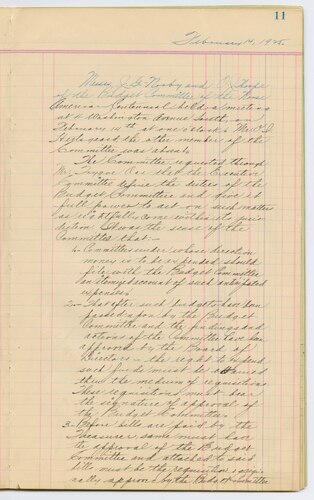 11
February 14, 1925.
Messrs J. G. Norby and
of the Budget Committee of the Norse
American Centennial held a meeting
at 4 Washington Avenue South, on
February 14th at one o'clock. Mr.
the other member of the
Committee was absent.
The Committee requested through
Mr. that the Executive
Committee define the duties of the
Budget Committee and give it
full power to act on such matters
as rightfully come within its juris-
diction. It was the sense of the
Committee that:-
1- Committees under whose direction
money is to be expended should
file with the Budget Committee
an itemized account of such anticipated
expenses.
2- That after such budgets have been
passed upon by the Budget
Committee and the findings and
actions of the Committee have been
approved by the Board of
Directors - the right to expend
such funds must be obtained
thru the medium of requisitions.
These requisitions must bear
the signature of approval of
the Budget Committee.
3- Before bills are paid by the
Treasurer, same must have
the approval of the Budget
Committee and attached to said
bills must be the requisition origi-
nally approved by the Budget Committee